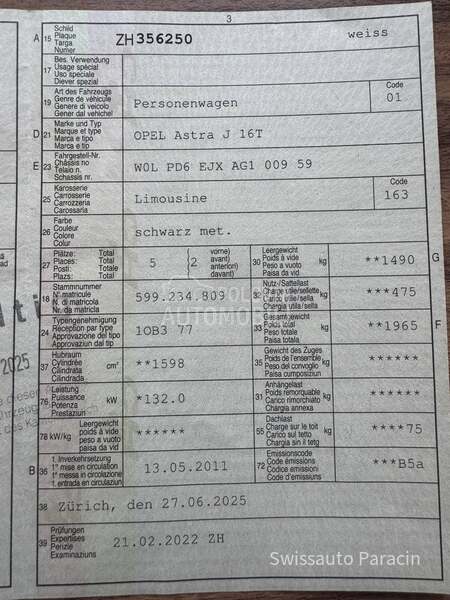 3
A 15 Schild
Plaque
Targa
Numer
ZH 356250 weiss
17 Bes. Verwendung
Usage spécial
Uso speciale
Diever spezial
19 Art des Fahrzeugs
Genre de véhicule
Genere di veicolo
Gener dal vehichel
Personenwagen
Code
01
D 21 Marke und Typ
Marque et type
Marca e tipo
Marca e tip
OPEL Astra J 16T
E 23 Fahrgestell-Nr.
Châssis no
Telaio n.
Schassis nr.
W0L PD6 EJX AG1 009 59
25 Karosserie
Carrosserie
Carrozzeria
Carossaria
Limousine
Code
163
26 Farbe
Couleur
Colore
Colur
schwarz met.
27 Plätze: Total
Places: Total
Posti: Totale
Plazs: Total
5 (2 vorne)
avant)
anteriori)
davant)
30 Leergewicht
Poids à vide
Peso a vuoto
Paisa da vid
kg **1490 G
18 Stammnummer
N° matricule
N. di matricola
Nr. da matricla
599.234.809
32 Nutz-/Sattellast
Charge utile/sellette
Carico utile/sella
Chargia utila/sella
kg ***475
24 Typengenehmigung
Réception par type
Approvazione del tipo
Approvaziun dal tip
1OB3 77
33 Gesamtgewicht
Poids total
Peso totale
Paisa totala
kg **1965 F
37 Hubraum
Cylindrée
Cilindrata
Cilindrada
cm³ **1598
35 Gewicht des Zuges
Poids de l'ensemble
Peso del convoglio
Paisa cumposiziun
kg ******
76 Leistung
Puissance
Potenza
Prestaziun
kW *132.0
31 Anhängelast
Poids remorquable
Carico rimorchiato
Chargia annexa
kg ******
78 kW/kg Leergewicht
poids à vide
peso a vuoto
paisa da vid
******
55 Dachlast
Charge sur le toit
Carico sul tetto
Chargia sin il tetg
kg ****75
B 36 1. Inverkehrsetzung
1re mise en circulation
1a messa in circolazione
1. entrada en circulaziun
13.05.2011
72 Emissionscode
Code émissions
Codice emissioni
Code d'emissiuns
***B5a
38 Zürich, den 27.06.2025
39 Prüfungen
Expertises
Perizie
Examinaziuns
21.02.2022 ZH
2025
Swissauto Paracin